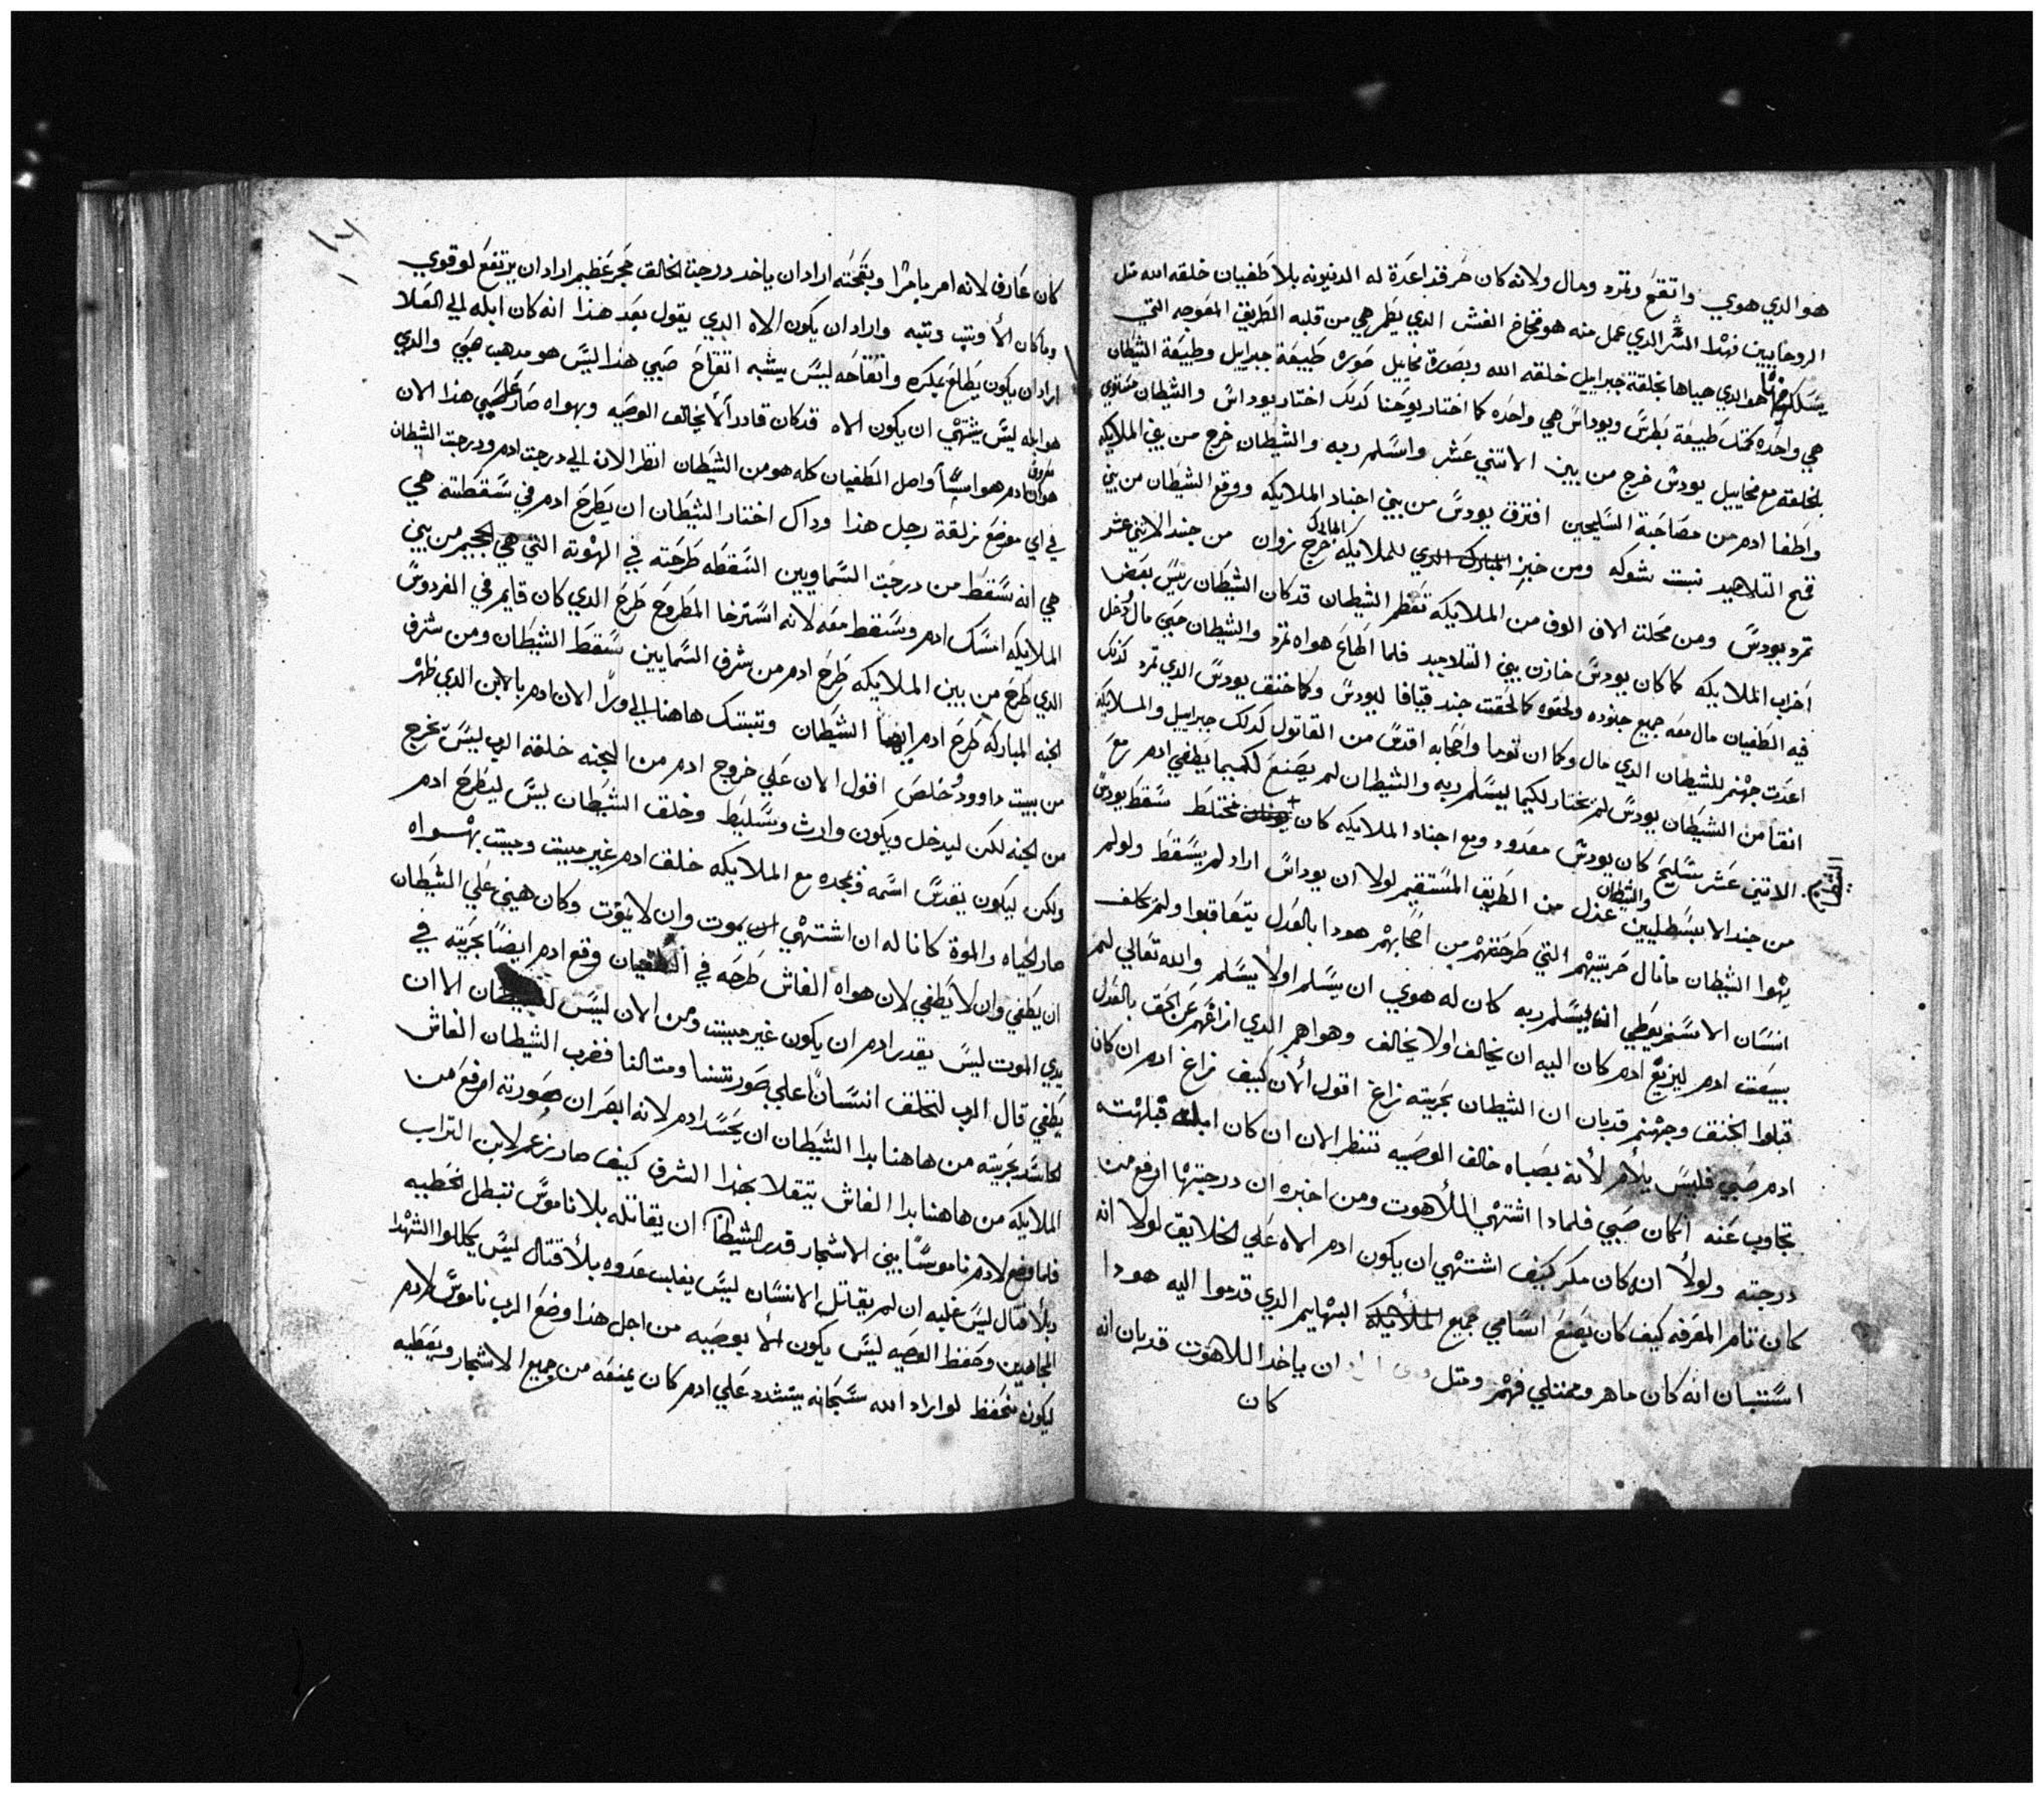 هو الدي هوي واتقع وتمرد ومال ولانه كان حر قد اعدة له الدنيونه بلا طغيان خلقه الله متل
الروحانيين فبهدا الشر الدي عمل منه هو فخاخ الغش الدي يظهر هي من قلبه الطريق المعوجه التي
يسلك هو الدي هياها بخلقة جبراييل خلقه الله وبصورة مخاييل صوره طبيعة جبراييل وطبيعة الشيطان
هي واحده كمتل طبيعة بطرس ويوداس هي واحده كما اختار يوحنا كدلك اختار يوداس والشيطان مستوي
بالخلقة مع مخاييل يودس خرج من بين الاتني عشر واسلم ربه والشيطان خرج من بين الملايكه
واطغا ادم من مصاحبة السليحين افترق يودس من بين اجناد الملايكه ووقع الشيطان من بين
قمح التلاميد نبت شوكه ومن خبز المبارك الدي للملايكه خرج زوان من جند الاتني عشر
تمرد يودس ومن محلت الاف الوف من الملايكه تعظم الشيطان قد كان الشيطان ريس بعض
احزاب الملايكه كما كان يودس خازن بين التلاميد فلما اطاع هواه تمرد والشيطان حين مال دخل
فيه الطغيان مال معه جميع جنوده ولحقوه كما لحقت جند قيافا ليودس وكما خنق يودس الدي تمرد كدلك
اعدت جهنم للشيطان الدي مال وكما ان توما واصحابه اقدس من القاتول كدلك جبراييل والملايكه
انقا من الشيطان يودس لم يختار لكيما يسلم ربه والشيطان لم يصنع لكيما يطغي ادم مع
الاتني عشر سليح كان يودس معدود ومع اجناد الملايكه كان مختلط سقط يودس
من جند الا بسطليين والشيطان عزل من الطريق المستقيم لولا ان يوداس اراد لم يسقط ولو لم
يهوا الشيطان ما مال حريتهم التي طرحتهم من اصحابهم هودا بالعدل يتعاقبوا ولم كلف
انسان الاسخريوطي انه يسلم ربه كان له هوي ان يسلم او لا يسلم والله تعالي لم
يبعت ادم ليزيغ ادم كان اليه ان يخالف او لا يخالف وهواهم الدي ازاغهم عن الحق بالعدل
قبلوا الخنق وجهنم قد بان ان الشيطان بحريته زاغ اقول الان كيف زاغ ادم ان كان
ادم صبي فليس يلام لانه بصباه خالف الوصيه ننظر الان ان كان ابله فبلهته
تجاوب عنه ان كان صبي فلمادا اشتهي الملاهوت ومن اخبره ان درجتها ارفع من
درجته ولولا ان كان مكر كيف اشتهي ان يكون ادم الاه علي الخلايق لولا انه
كان تام المعرفه كيف كان يصنع اسامي جميع الملايكه البهايم الدي قدموا اليه هودا
استبان انه كان ماهر وممتلي فهم ومتل ان ياخد اللاهوت قد بان انه
كان
كان عارف لانه امر بامرا وبقحته اراد ان ياخد درجت الخالق فجر عظيم اراد ان يرتفع لو قوي
وما كان الا وتب رتبه واراد ان يكون الاه الدي يقول بعد هذا انه كان ابله الي العلا
اراد ان يكون يطلع بمكره وانتفاخه ليس يشبه انتفاخ صبي هذا ليس هو مدهب صبي والدي
هو ابله ليس يشتهي ان يكون الاه قد كان قادر الا يخالف الوصيه وبهواه صار هذا الان
معروف هوان ادم هوا سببا واصل الطغيان كله هو من الشيطان انظر الان الي درجت ادم ودرجت الشيطان
في اي موضع زلقة رجل هذا وداك اختار الشيطان ان يطرح ادم في سقطته هي
هي انه سقط من درجت السماويين السقطه طرحته في الهوته التي هي الجحيم من بين
الملايكه امسك ادم وسقط معه لانه استرخا المطروح طرح الدي كان قايم في الفردوس
الدي طرح من بين الملايكه طرح ادم من شرف السمايين سقط الشيطان ومن شرف
الجنه المباركه طرح ادم ايضا الشيطان وتبتك هاهنا الي ورا الان ادم بالابن الدي ظهر
من بيت داوود خلص اقول الان علي خروج ادم من الجنه خلقه الرب ليس يخرج
من الجنه لكن ليدخل ويكون وارث ويسليط وخلق الشيطان ليس ليطرح ادم
ولكن ليكون يقدس اسمه ويمجده مع الملايكه خلق ادم غير مييت ومييت بهواه
صار الحياه والموة كانا له ان اشتهي ان يموت وان لا يموت وكان هين علي الشيطان
ان يطغي وان لا يطغي لان هواه الغاش طرحه في الطغيان وقع ادم ايضا بحريته في
يدي الموت ليس يقدر ادم ان يكون غير مييت ومن الان ليس للشيطان الا ان
يطغي قال الرب لنخلق انسانا علي صورتنا ومتالنا فضرب الشيطان الغاش
الحاسد بحريته من هاهنا بدا الشيطان ان يحسد ادم لانه ابصر ان صورته ارفع من
الملايكه من هاهنا بدا الغاش يتقلا بهذا الشرف كيف صار نزعم لابن التراب
فلما وضع لادم ناموسا بين الاشجار قدر الشيطان ان يقاتله بلا ناموس تبطل الخطيه
وبلا قتال ليس غلبه ان لم يقاتل الانسان ليس يغلب عدوه بلا قتال ليس يكللوا الشهدا
المجاهدين وحفظ الوصيه ليس يكون الا بوصيه من اجل هذا وضع الرب ناموس لادم
ليكون متحفظ لو اراد الله سبحانه يتشدد علي ادم كان يمنعه من جميع الاشجار ويعطيه